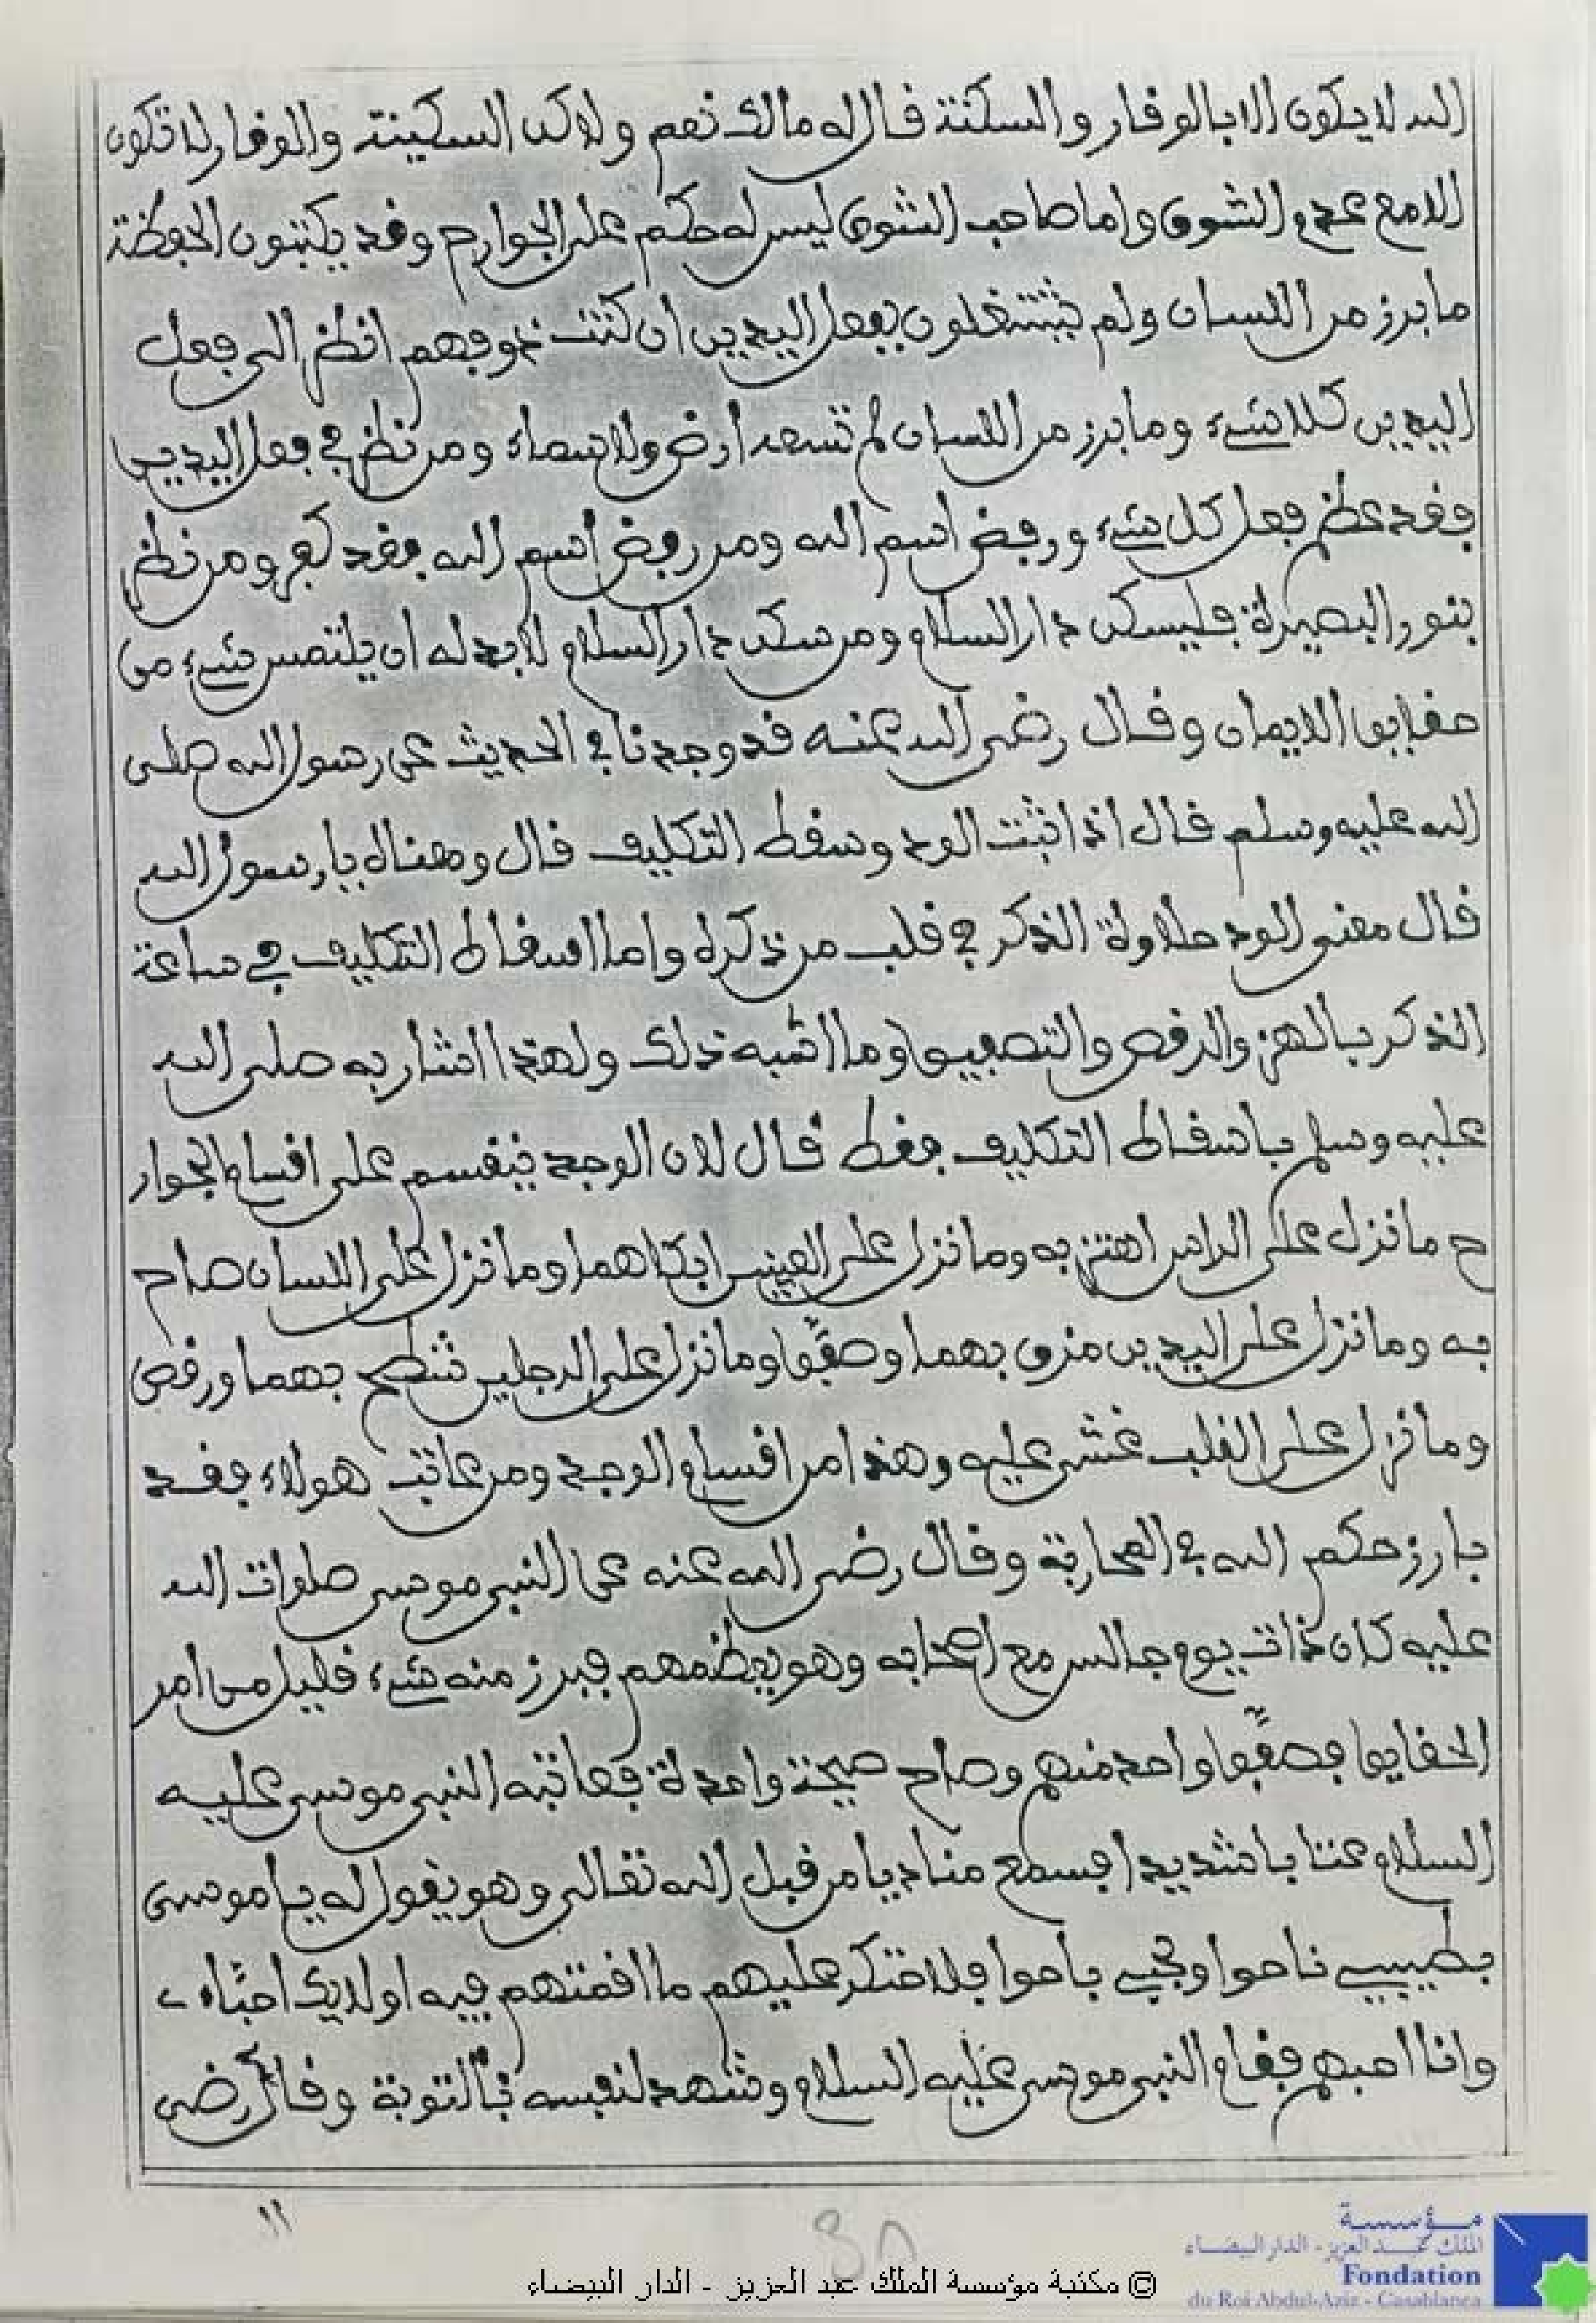 الله لا يكون الا بالوقار والسكنة فقال له مالك نعم ولاكن السكينة والوقار لا تكون
الا مع عدم الشوق واما صاحب الشوق ليس له حكم على الجوارح وقد يكتبون الحفظة
ما برز من اللسان ولم يشتغلون بفعل اليدين ان كنت نحوفهم انظر الى فعل
اليدين كلا شيء وما برز من اللسان لم تسعه ارض ولا سماء ومن نظر في فعل اليدين
فقد عظم فعل كل شيء ورفض اسم الله ومن رفض اسم الله فقد كفر ومن نظر
بنور البصيرة فليسكن دار السلام ومن سكن دار السلام لا بد له ان يلتمس شيء من
حقايق الايمان وقال رضي الله عنه قد وجدنا في الحديث عن رسول الله صلى
الله عليه وسلم قال اذا ثبت الود وسقط التكليف قال ومعناه يا رسول الله
قال معنى الود حلاوة الذكر في قلب من ذكره واما اسقاط التكليف في ساعة
الذكر بالهز والرقص والتصفيق وما اشبه ذلك ولهذا اشار به صلى الله
عليه وسلم باسقاط التكليف فقط قال لان الوجد ينقسم على اقسام الجوار
ح ما نزل على الراس اهتز به وما نزل على العينين ابكاهما وما نزل على اللسان صاح
به وما نزل على اليدين مزق بهما وصفّق وما نزل على الرجلين شطح بهما ورقص
وما نزل على القلب غشي عليه وهذا من اقسام الوجد ومن عاتب هولاء فقد
بارز حكم الله في المحاربة وقال رضي الله عنه عن النبي موسى صلوات الله
عليه كان ذات يوم جالس مع اصحابه وهو يعظمهم فبرز منه شيء قليل من امر
الحقايق فصفّق واحد منهم وصاح صيحة واحدة فعاتبه النبي موسى عليه
السلام عتابا شديدا فسمع مناديا من قبل الله تعالى وهو يقول له يا موسى
بطيبي ناحوا وبحبي باحوا فلا تنكر عليهم ما اقمتهم فيه اولايك احبّاء
وانا احبهم فقام النبي موسى عليه السلام وشهد لنفسه بالتوبة وقال رضي
١١
38
مؤسسة
الملك عبد العزيز - الدار البيضاء
Fondation
du Roi Abdul-Aziz - Casablanca
© مكتبة مؤسسة الملك عبد العزيز - الدار البيضاء